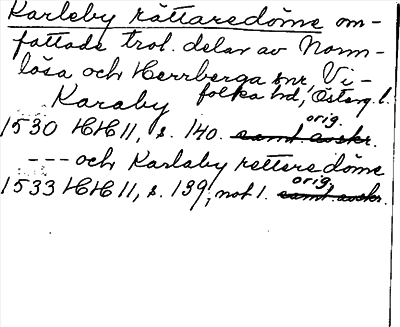 Karleby rättaredöme om-
fattade trol. delar av Norm-
lösa och Herrberga snr, Vi-
folka hd, Österg. l.
Karaby
1530 HH 11, s. 140. orig. samt. avskr.
--- och Karlaby retteredöme
1533 HH 11, s. 139, not 1. orig. samt. avskr.